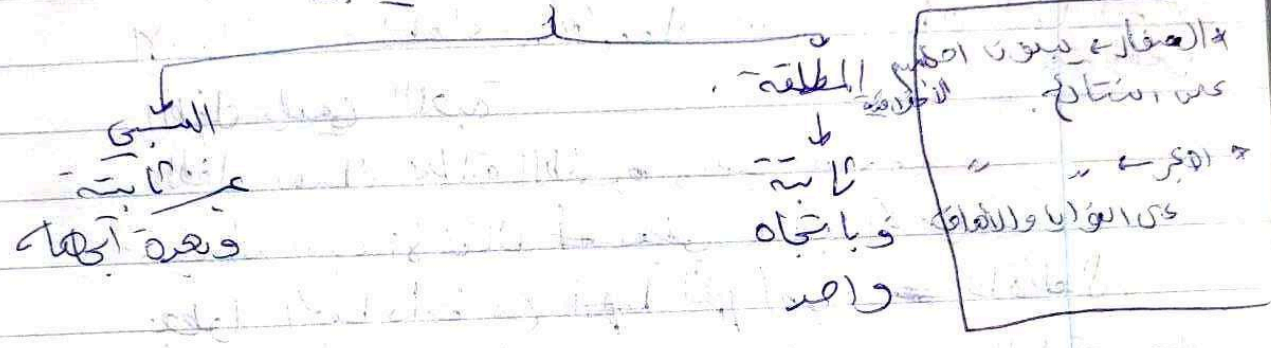 * الصغار ← يبنون احكامهم الأخلاقية
على النتائج.
* الأكبر ← 〃 〃
على النوايا والأهداف
المطلقة
ثابتة
وباتجاه
واحد
النسبي
غير ثابتة
وبعدة اتجاهات